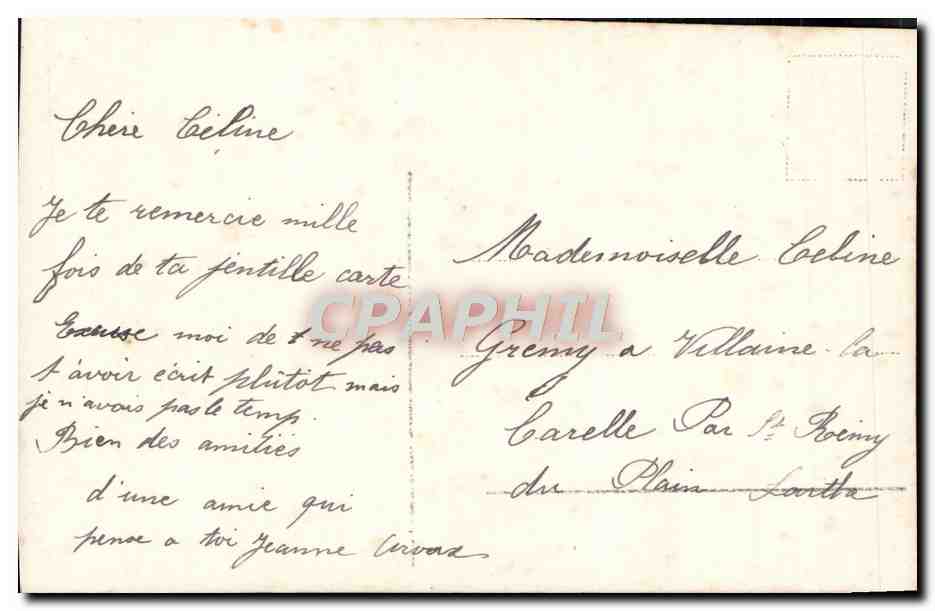 Chère Céline
Je te remercie mille
fois de ta jentille carte
Excuse moi de ne pas
t'avoir écrit plûtôt mais
je n'avois pas le temp.
Bien des amitiés
d'une amie qui
pense a toi Jeanne
Mademoiselle Celine
Gremy a Villaine la
Carelle Par St Remy
du Plain Sartha
CPAPHIL